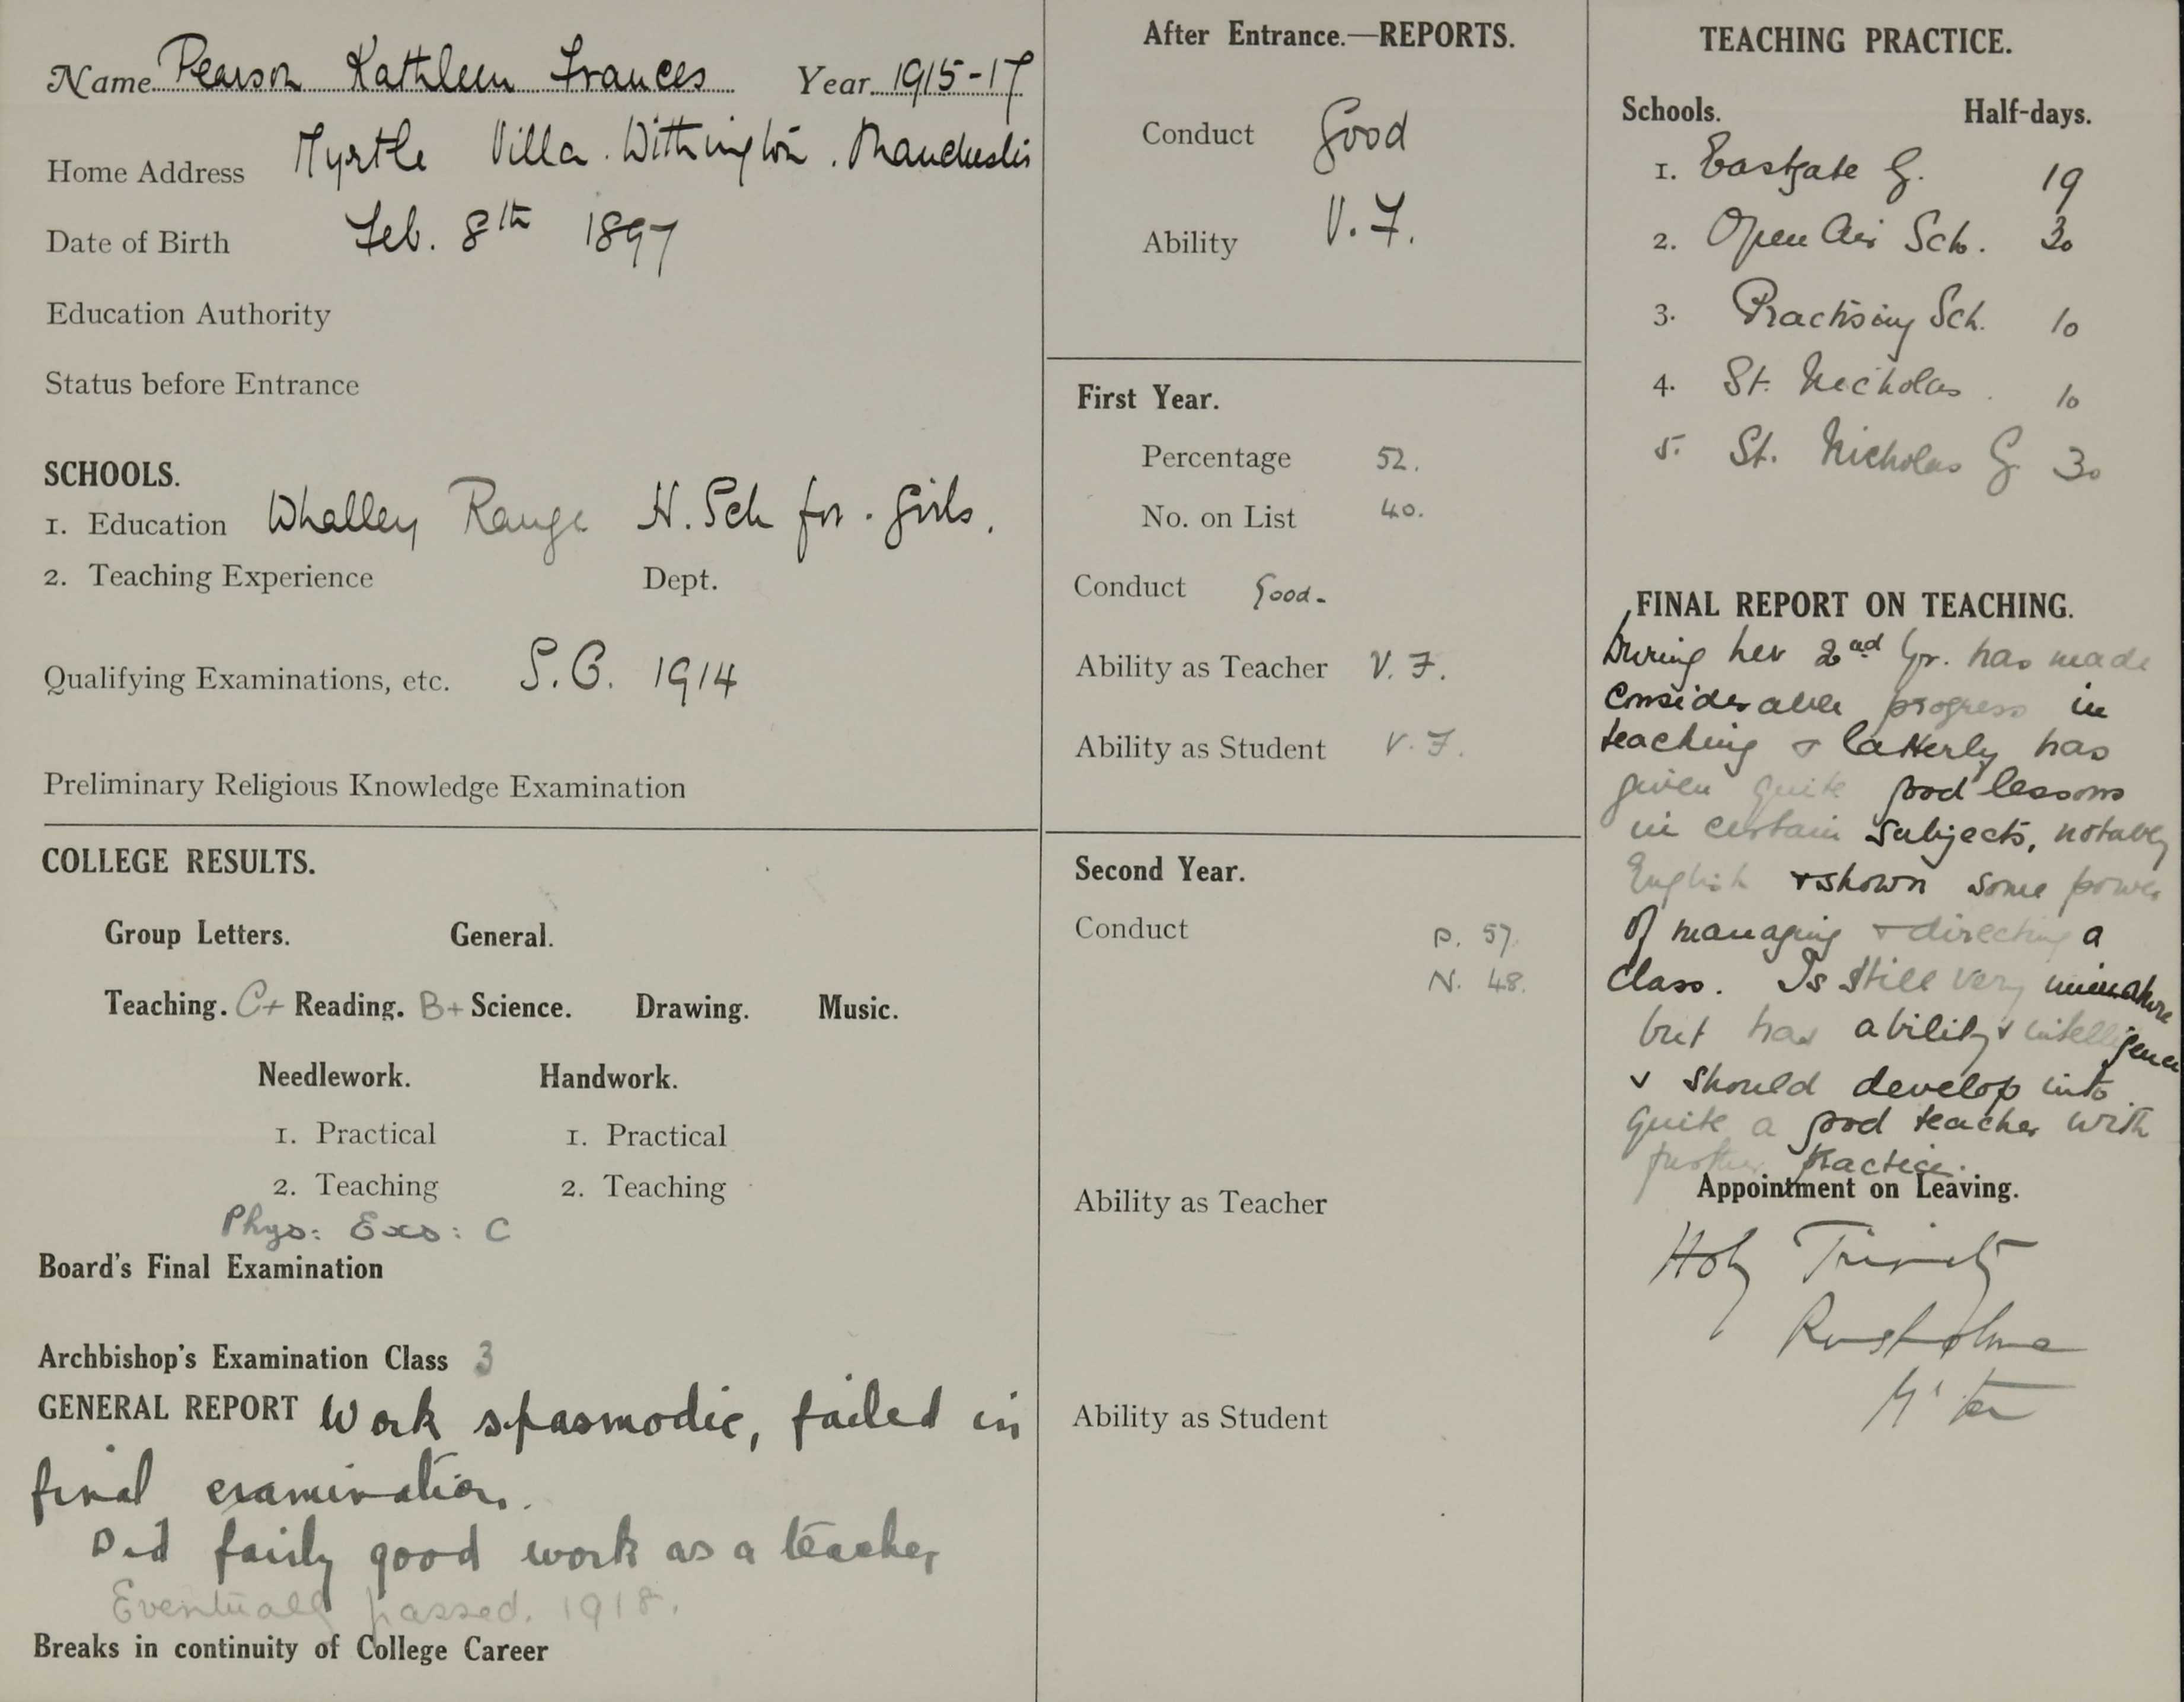 Name Pearson Kathleen Frances Year 1915-17
Home Address Myrtle Villa. Withington. Manchester
Date of Birth Feb. 8th 1897
Education Authority
Status before Entrance
SCHOOLS.
1. Education Whalley Range H. Sch for. Girls.
2. Teaching Experience Dept.
Qualifying Examinations, etc. 1914
Preliminary Religious Knowledge Examination
COLLEGE RESULTS.
Group Letters. General.
Teaching. C+ Reading. B+ Science. Drawing. Music.
Needlework. Handwork.
1. Practical 1. Practical
2. Teaching 2. Teaching
Phys: Exs: C
Board's Final Examination
Archbishop's Examination Class 3
GENERAL REPORT Work spasmodic, failed in
final examination.
Did fairly good work as a teacher
Eventually passed. 1918.
Breaks in continuity of College Career
After Entrance.—REPORTS.
Conduct Good
Ability V. F.
First Year.
Percentage 52.
No. on List 40.
Conduct Good-
Ability as Teacher V. F.
Ability as Student V. F.
Second Year.
Conduct P. 57.
N. 48.
Ability as Teacher
Ability as Student
TEACHING PRACTICE.
Schools. Half-days.
1. Eastgate G. 19
2. Open Air Sch. 30
3. Practising Sch. 10
4. St. Nicholas. 10
5. St. Nicholas G. 30
FINAL REPORT ON TEACHING.
During her 2nd Yr. has made
considerable progress in
teaching & latterly has
given quite good lessons
in certain subjects, notably
English & shown some power
of managing & directing a
class. Is still very immature
but has ability & intelligence
& should develop into
quite a good teacher with
further practice.
Appointment on Leaving.
Holy Trinity
Rusholme
M'ter